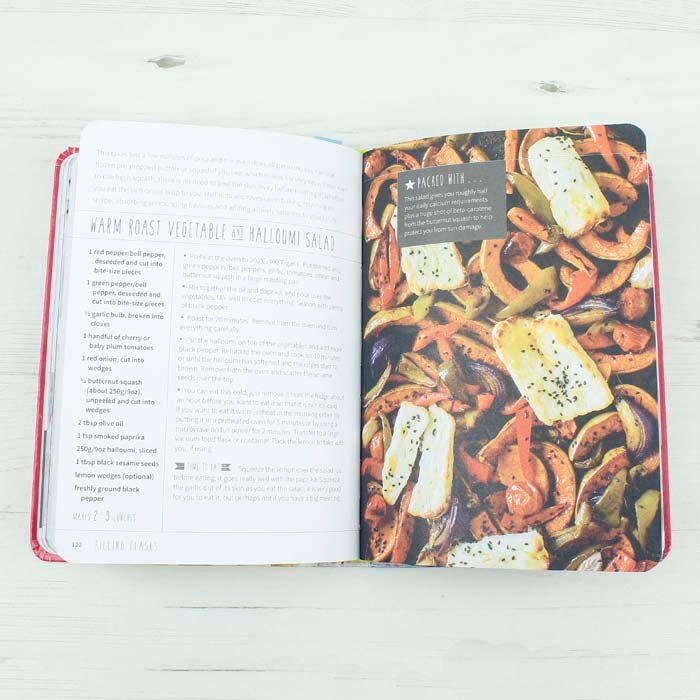 WARM ROAST VEGETABLE AND HALLOUMI SALAD
1 red pepper/bell pepper,
deseeded and cut into
bite-size pieces
1 green pepper/bell
pepper, deseeded and
cut into bite-size pieces
½ garlic bulb, broken into
cloves
1 handful of cherry or
baby plum tomatoes
1 red onion, cut into
wedges
½ butternut squash
(about 250g/9oz),
unpeeled and cut into
wedges
2 tbsp olive oil
1 tsp smoked paprika
250g/9oz halloumi, sliced
1 tbsp black sesame seeds
lemon wedges (optional)
freshly ground black
pepper
MAKES 2 - 3 LUNCHES
• Preheat the oven to 200°C/400°F/gas 6. Put the red and
green peppers/bell peppers, garlic, tomatoes, onion and
butternut squash in a large roasting pan.
• Mix together the oil and paprika, and pour over the
vegetables. Mix well to coat everything. Season with plenty
of black pepper.
• Roast for 20 minutes. Remove from the oven and turn
everything carefully.
• Put the halloumi on top of the vegetables and add more
black pepper. Return to the oven and cook for 10 minutes
or until the halloumi has softened and the edges start to
brown. Remove from the oven and scatter the sesame
seeds over the top.
• You can eat this cold, just remove it from the fridge about
an hour before you want to eat it so that it is not ice-cold.
If you want to eat it warm, reheat in the morning either by
putting it in a preheated oven for 5 minutes or by using a
microwave on full power for 2 minutes. Transfer to a large
vacuum food flask or container. Pack the lemon to take with
you, if using.
TIME TO EAT Squeeze the lemon over the salad
before eating; it goes really well with the paprika. Squeeze
the garlic out of its skin as you eat the salad; it is very good
for you to eat it, but perhaps not if you have a big meeting.
122 FILLING FLASKS
PACKED WITH . . .
This salad gives you roughly half
your daily calcium requirements
plus a huge shot of beta-carotene
from the butternut squash to help
protect you from sun damage.